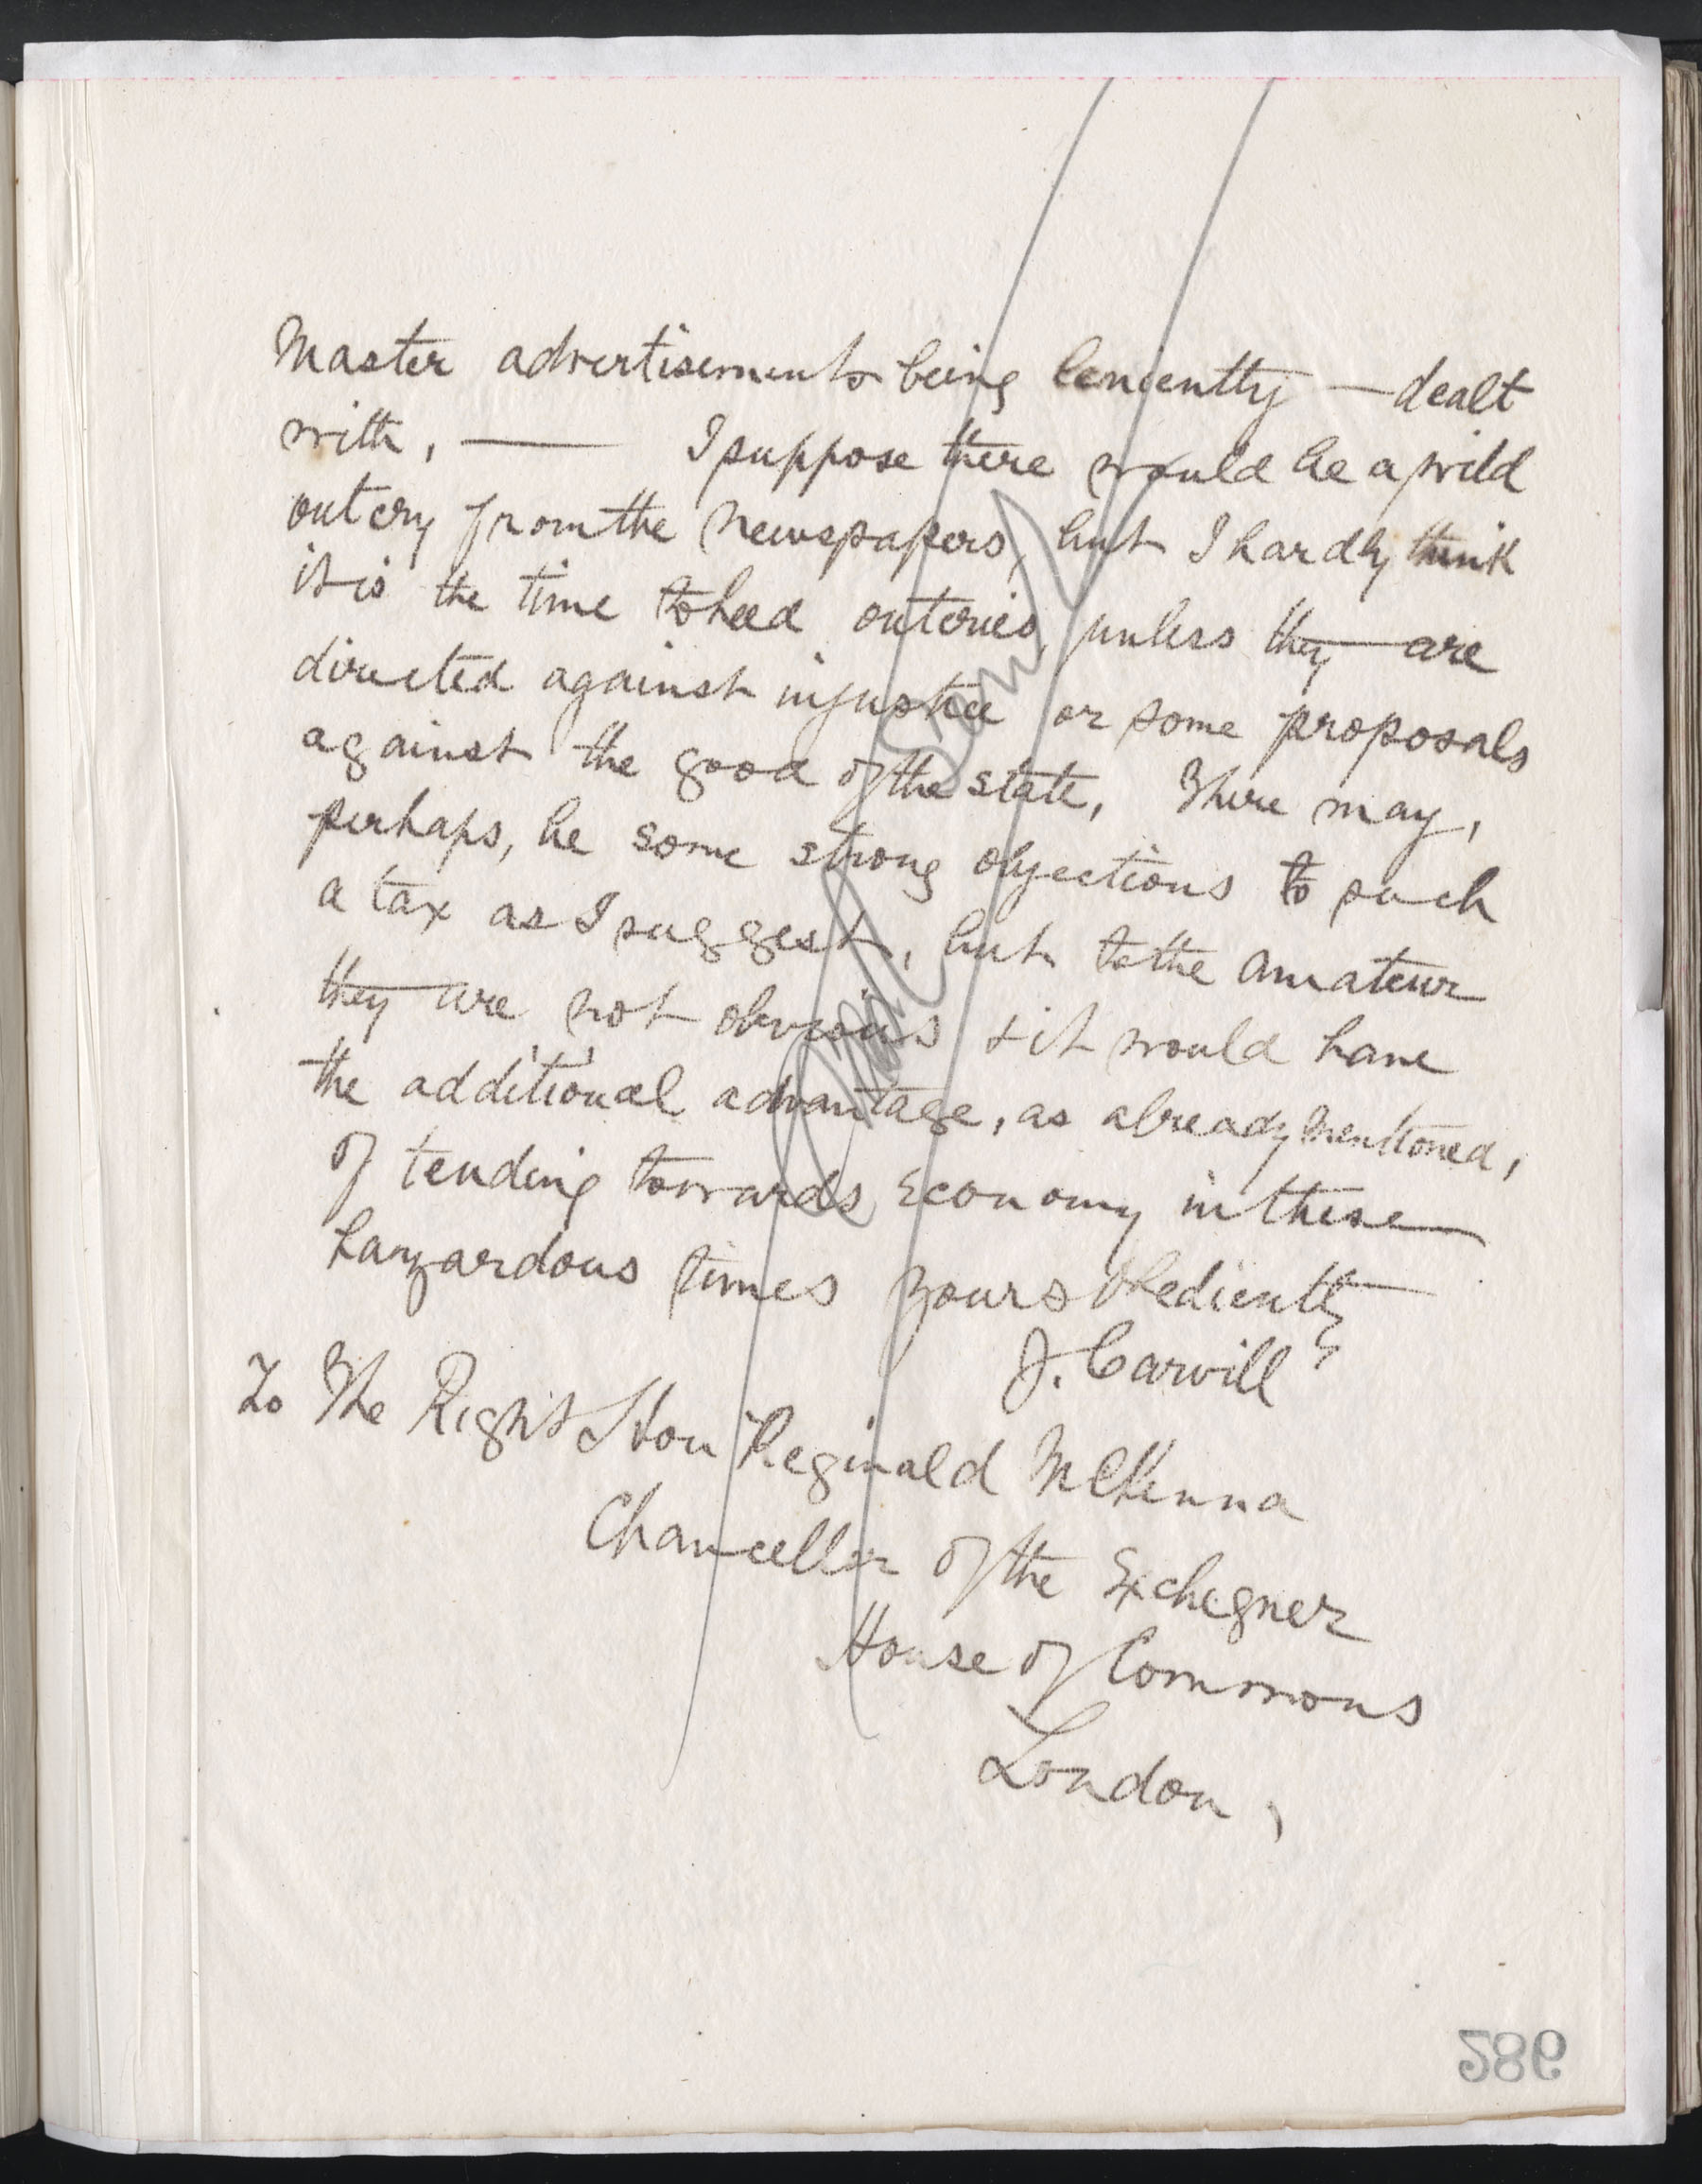 Master advertisements being leniently — dealt
with, — I suppose there would be a wild
outcry from the newspapers, but I hardly think
it is the time to heed outcries, unless they are
directed against injustice or some proposals
against the good of the state, There may,
perhaps, be some strong objections to such
a tax as I suggest, but to the amateur
they are not obvious & it would have
the additional advantage, as already mentioned,
of tending towards economy in these
hazardous times Yours obediently
J. Carvill
To The Right Hon Reginald McKenna
Chancellor of the Exchequer
House of Commons
London,
286